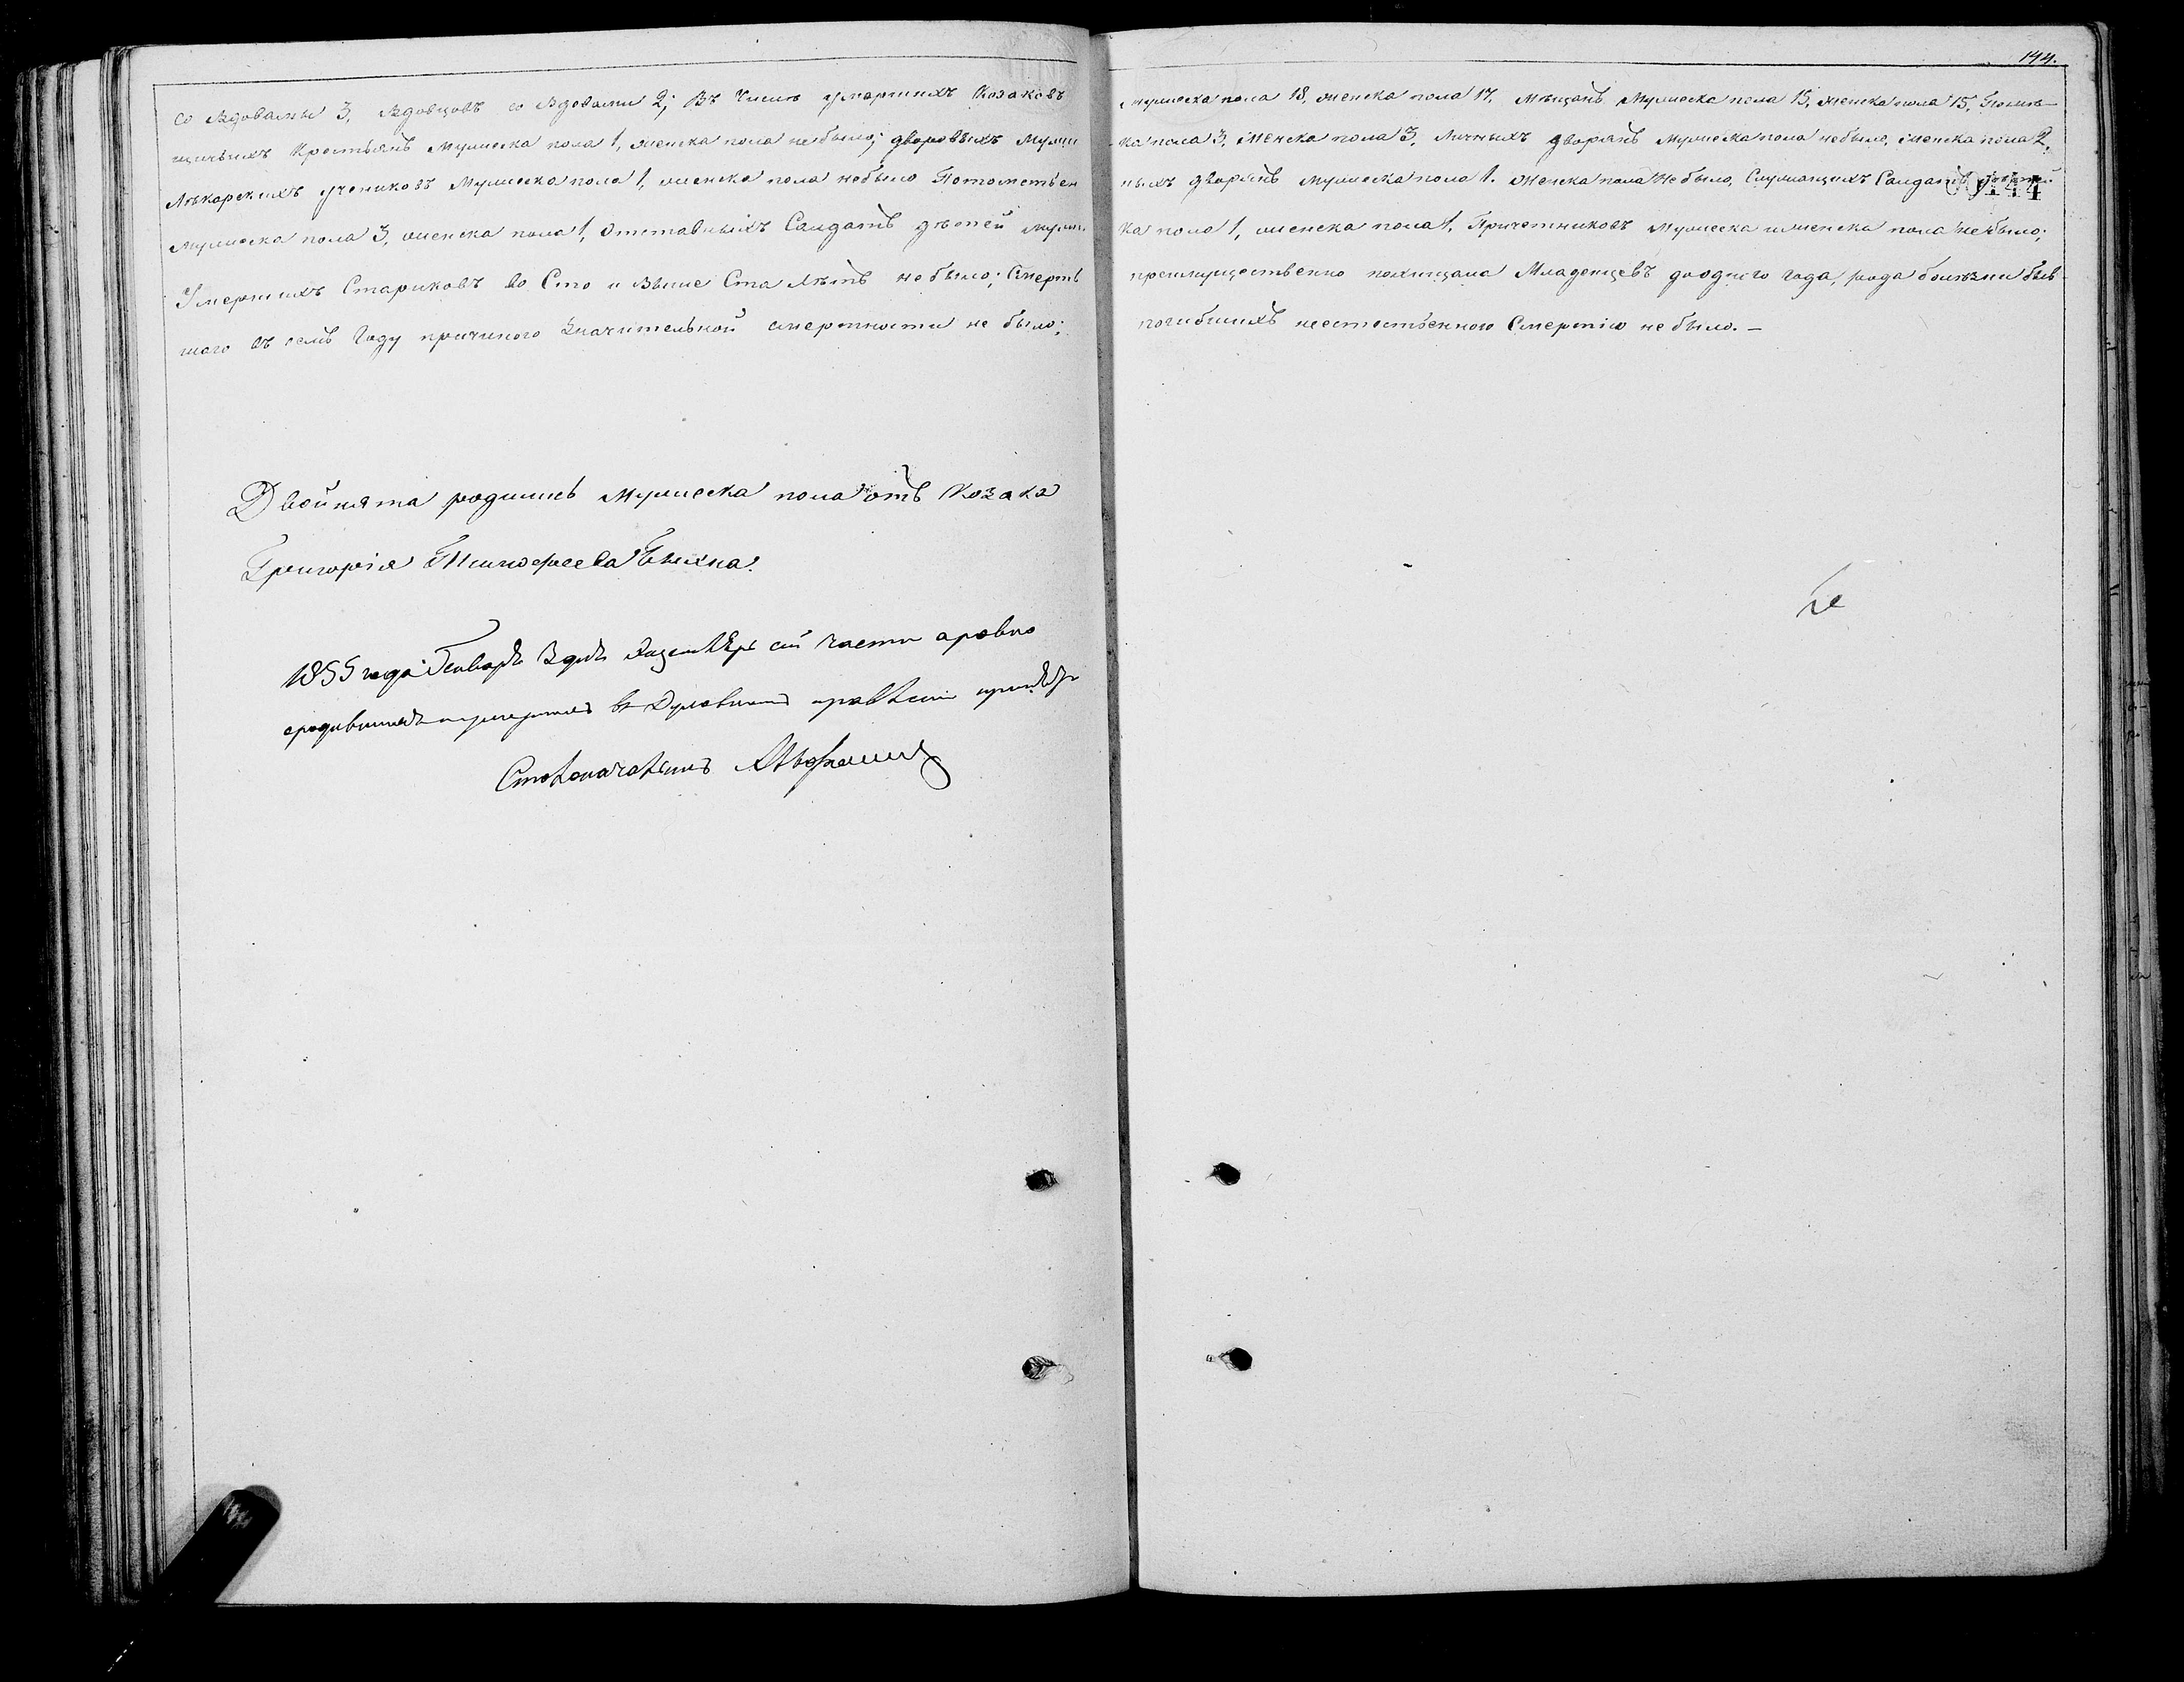 144.
со вдовами 3, вдовцовъ со вдовами 2; Въ числѣ умершихъ Козаковъ
щичьихъ Крестьянъ мужеска пола 1, женска пола не было; дворовыхъ мужес
Лѣкарскихъ учениковъ мужеска пола 1, женска пола не было Потомствен
мужеска пола 3, женска пола 1, Отставныхъ Салдатъ дѣтей мужес
Умершихъ Стариковъ во Сто и Выше Ста лѣтъ не было; Смерть
шаго въ семъ Году причиною Значительной смертности не было;
Двойнята родились мужеска пола отъ Козака
Григорія Тимофеева
1855 года Генваря 3 дня сей части
въ Духовномъ правленіи
Столоначальникъ
мужеска пола 18, женска пола 17, мѣщанъ мужеска пола 15, женска пола 15, Помѣ-
ка пола 3, женска пола 3, Личныхъ дворянъ мужеска пола не было, женска пола 2.
ныхъ дворянъ мужеска пола 1. Женска пола не было, Служащихъ Салдатъ
144
ка пола 1, женска пола 1, Причетниковъ мужеска и женска пола не было;
преимущественно похищала Младенцевъ до одного года, рода болѣзни быв-
погибшихъ неестественною Смертію не было. —